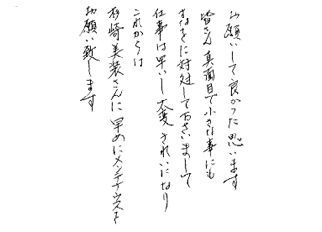 お願いして良かった思います
皆さん真面目で小さな事にも
すぐに対処して下さいまして
仕事は早いし大変きれいになり
これからは
杉崎美装さんに早めにメンテナンスを
お願い致します